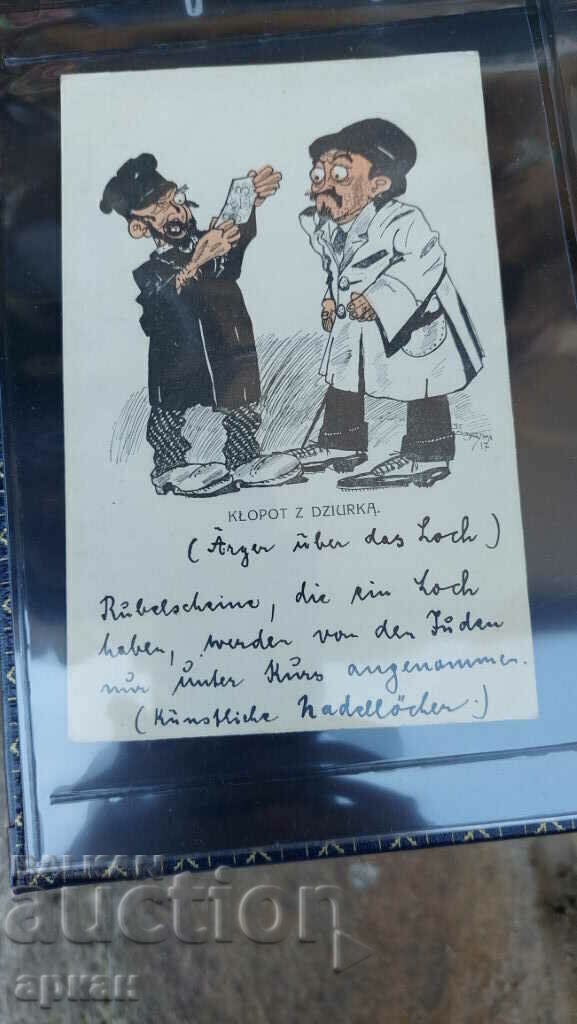 17
KŁOPOT Z DZIURKĄ.
(Ärger über das Loch)
Rubelscheine, die ein Loch
haben, werden von den Juden
nur unter Kurs angenommen.
(Künstliche Nadellöcher.)
BALKAN
auction
аркан